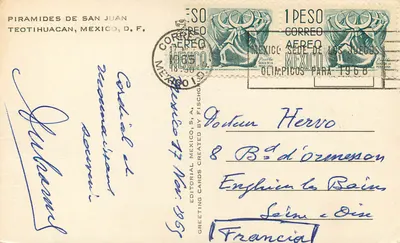 PIRAMIDES DE SAN JUAN
TEOTIHUACAN, MEXICO, D. F.
Cordial et
reconnaissant
souvenir
Mexico 17 Nov. 1965
EDITORIAL MEXICO, S. A.
GREETING CARDS CREATED BY FISCHGRUND
1 PESO
CORREO
AEREO
MEXICO
1 PESO
CORREO
AEREO
MEXICO
CORREOS
1965
MEXICO
MEXICO SEDE DE LOS JUEGOS
OLIMPICOS PARA 1968
Docteur Hervo
8 Bd d'Ormesson
Enghien les Bains
Seine & Oise
(Francia)